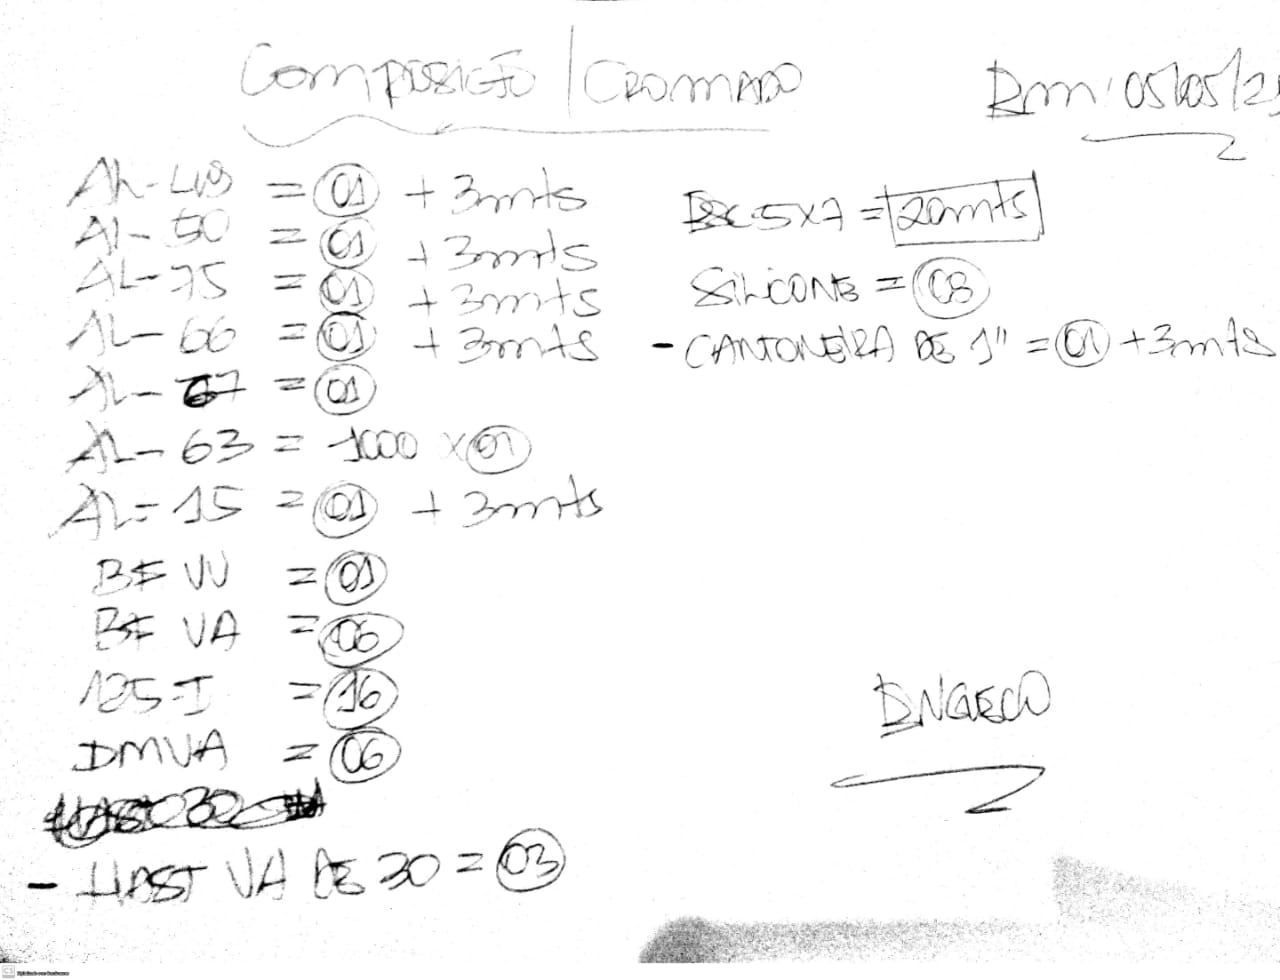 Composição / CROMADO
Em: 05/05/2
AL-49 = 01 + 3mts
AL-50 = 01 + 3mts
AL-75 = 01 + 3mts
AL-66 = 01 + 3mts
AL-67 = 01
AL-63 = 1000 x 01
AL=15 = 01 + 3mts
BF VV = 01
BF VA = 06
125-I = 16
DMVA = 06
- HAST VA DE 30 = 03
5x7 = 20mts
SILICONE = 08
- CANTONEIRA DE 1" = 01 + 3mts